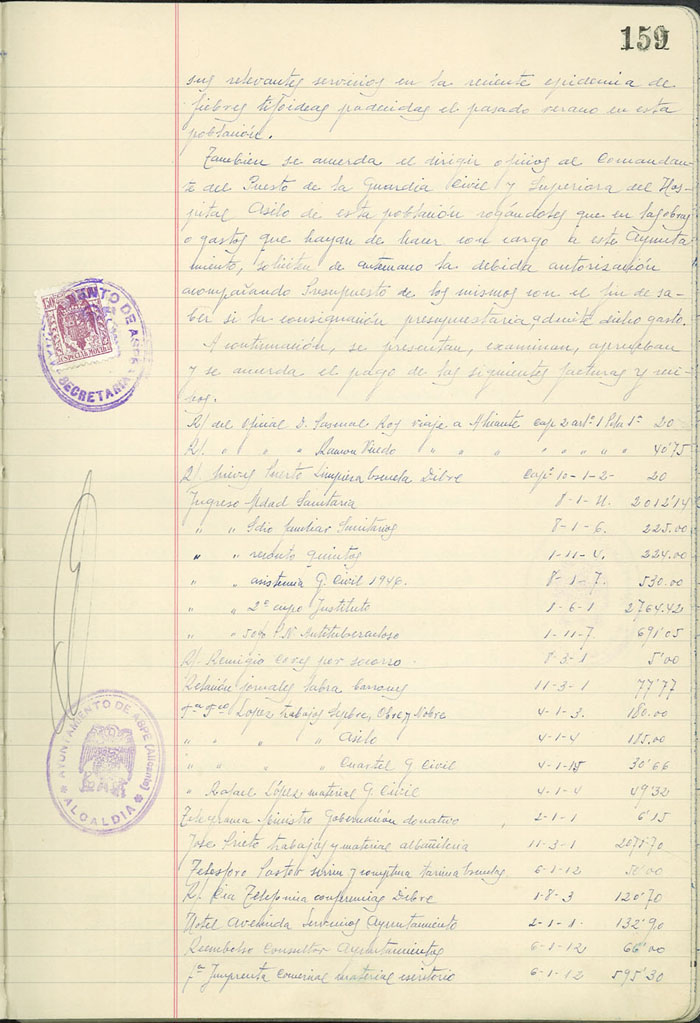 159
sus relevantes servicios en la reciente epidemia de
fiebres tifoideas padecidas el pasado verano en esta
población.
También se acuerda el dirigir oficios al Comandan-
te del Puesto de la Guardia Civil y Superiora del Hos-
pital Asilo de esta población rogándoles que en las obras
o gastos que hayan de hacer con cargo a este Ayunta
miento, soliciten de antemano la debida autorización
acompañando Presupuesto de los mismos con el fin de sa-
ber si la consignación presupuestaria admite dicho gasto.
A continuación, se presentan, examinan, aprueban
y se acuerda el pago de las siguientes facturas y reci-
bos.
R/ del Oficial D. Pascual Roy viaje a Alicante Cap 2 artº 1 Pda 1ª 20
R/. " " " Ramon " " " " " " " 40'75
R/ Nieves Puerto Limpieza Escuela Dibre Capº 10-1-2- 20
Ingreso Mdad Sanitaria 8-1-11. 2012'14
" " Sdio familiar Sanitarios 8-1-6. 225.00
" " recuento quintos 1-11-4. 224.00
" " asistencia G. Civil 1946. 8-1-7. 530.00
" " 2º cupo Instituto 8-6-1 2764.42
" " 50% P.N. Antituberculoso 1-11-7. 691'05
R/. Remigio Cores por socorro. 8-3-1 5'00
Relación jornales 11-3-1 77'77
Fra Fco Lopez trabajos Sepbre, Obre y Nobre 4-1-3. 180.00
" " " " Asilo 4-1-4 185.00
" " " " Cuartel G. Civil 4-1-15 30'66
" Rafael López material G. Civil 4-1-4 49'32
Telegrama Ministro Gobernación donativo 2-1-1 6'15
José Prieto trabajos y material albañileria 11-3-1 2075'70
Telesforo Pastor 6-1-12 50'00
R/. Cia Telefonica conferencias Dibre 1-8-3 120'70
Hotel Avenida Servicios Ayuntamiento 2-1-1- 132'90
Reembolso Consultor Ayuntamientos 6-1-12 66'00
Fra Imprenta Comercial material escritorio 6-1-12 595'30
AYUNTAMIENTO DE ASPE
SECRETARIA
AYUNTAMIENTO DE ASPE (Alicante)
ALCALDIA